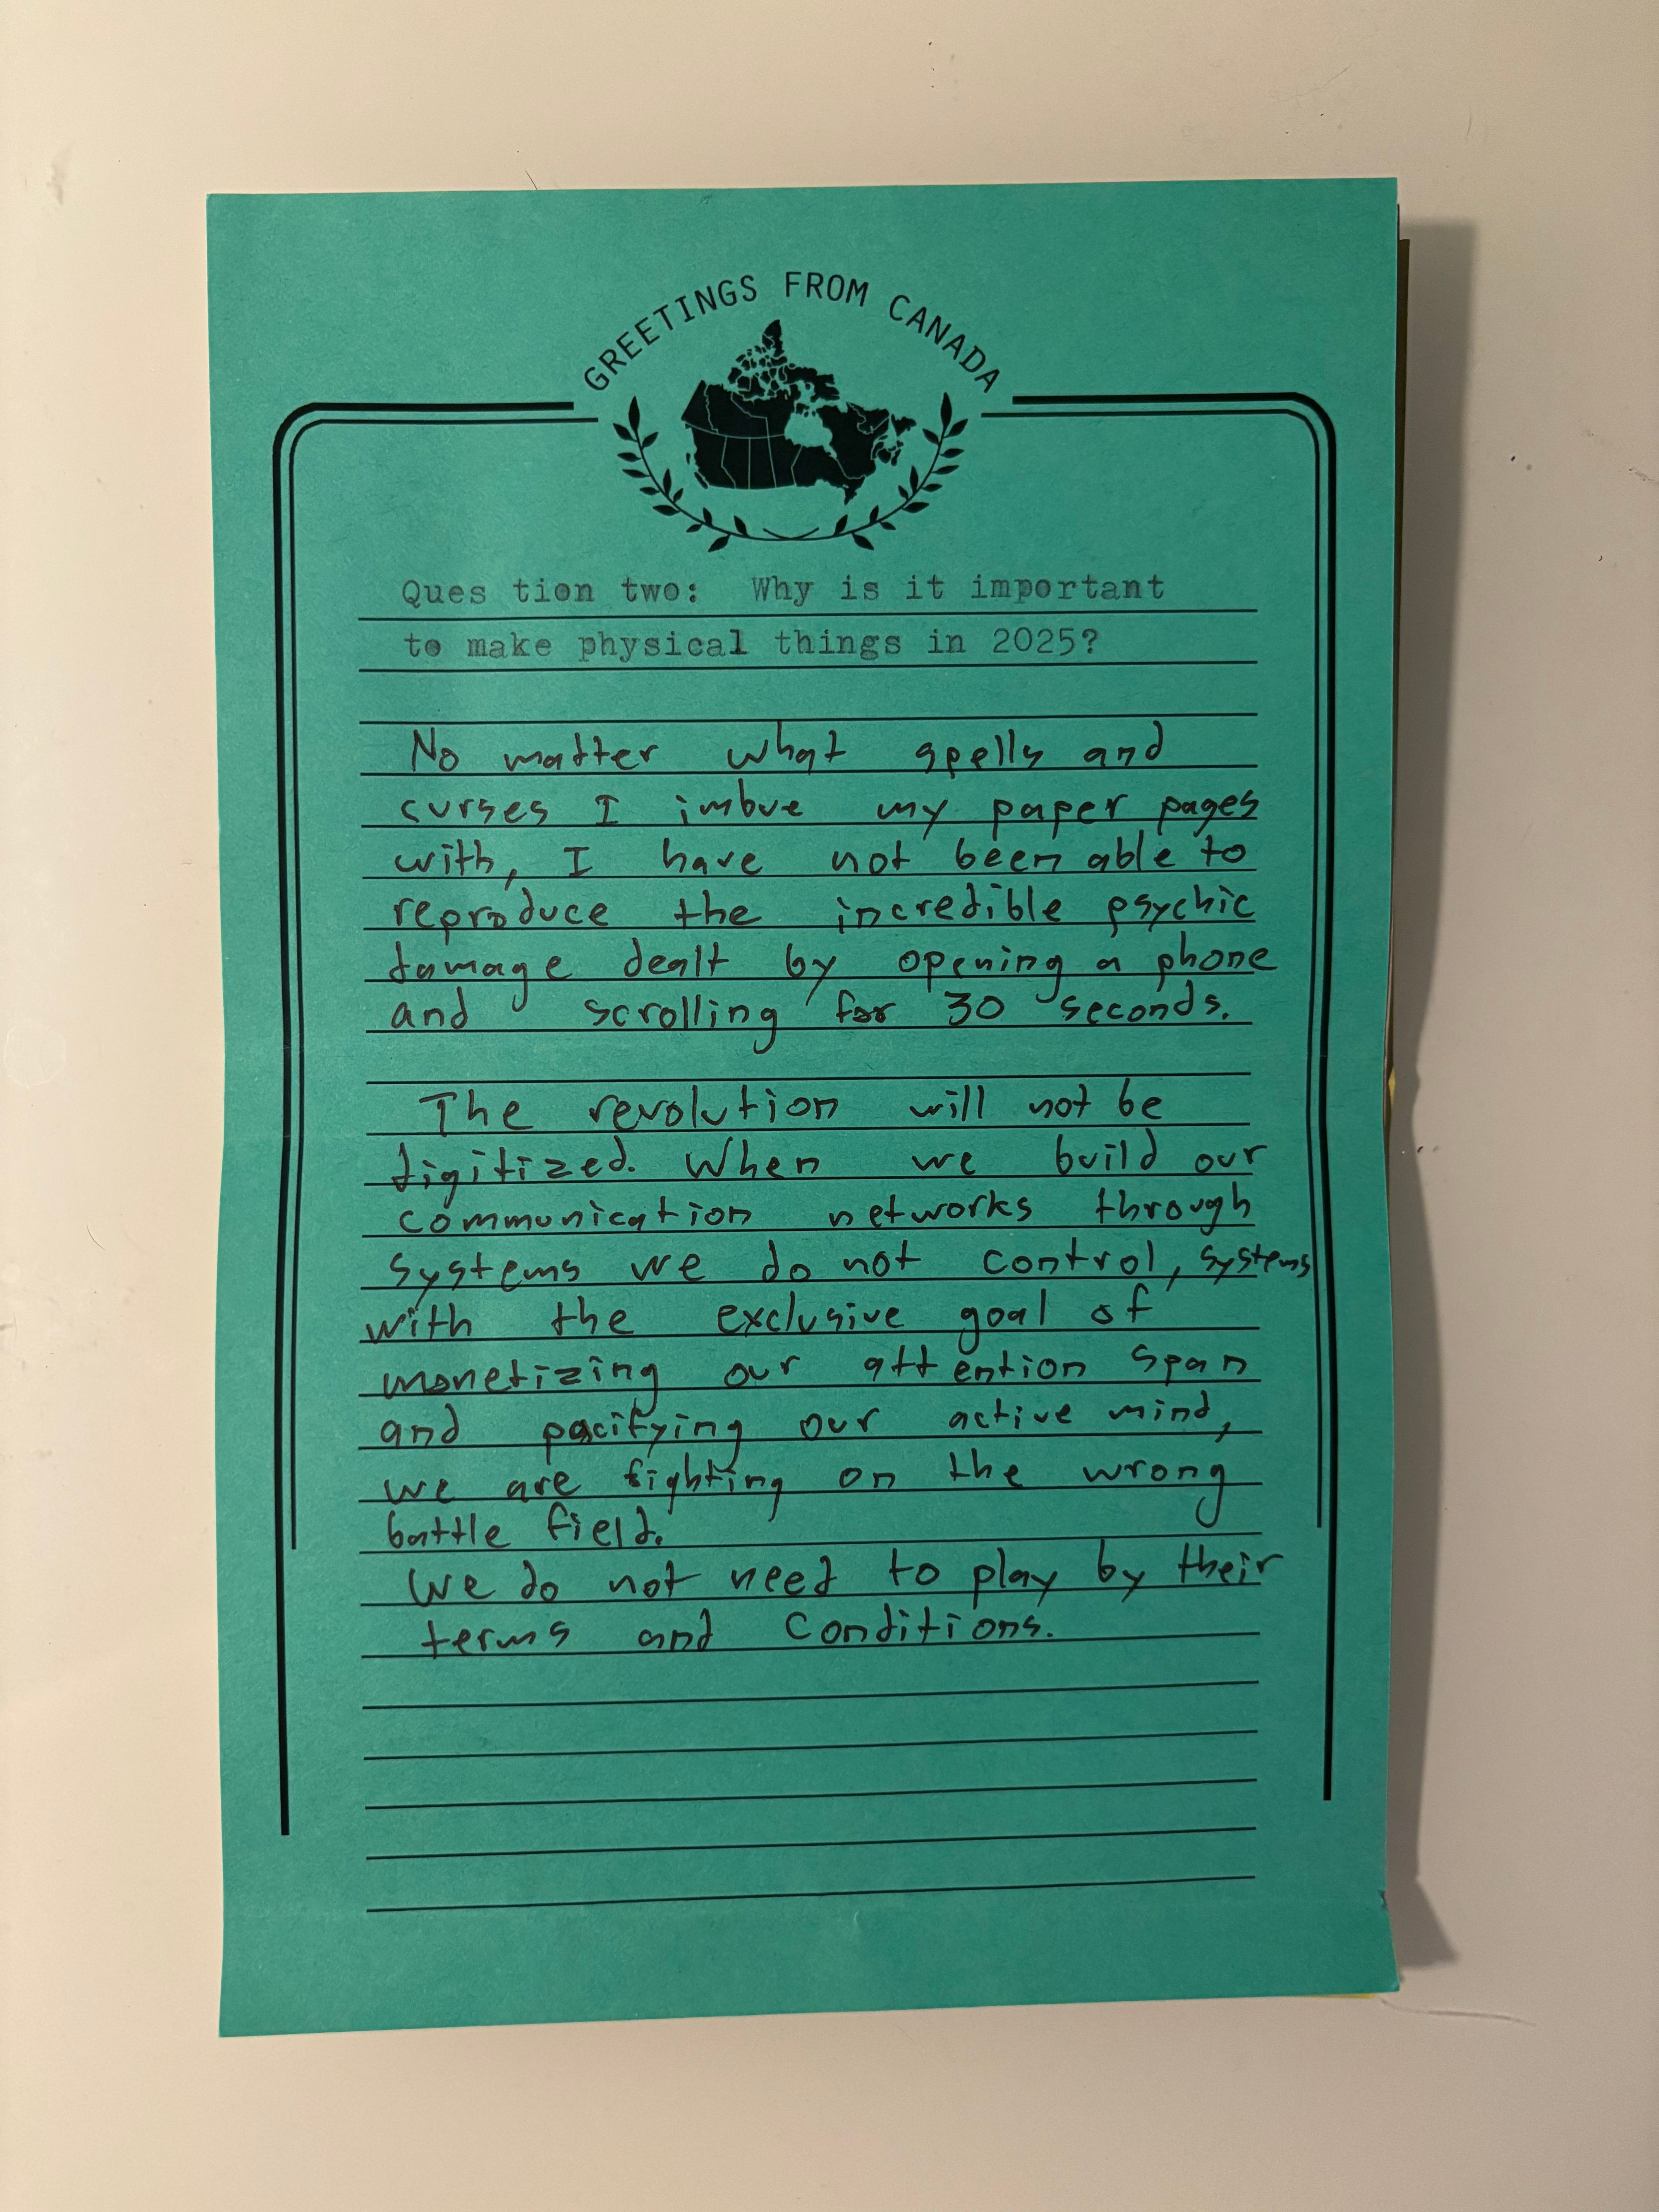 GREETINGS FROM CANADA
Ques tion two: Why is it important
to make physical things in 2025?
No matter what spells and
curses I imbue my paper pages
with, I have not been able to
reproduce the incredible psychic
damage dealt by opening a phone
and scrolling for 30 seconds.
The revolution will not be
digitized. When we build our
communication networks through
systems we do not control, systems
with the exclusive goal of
monetizing our attention span
and pacifying our active mind,
we are fighting on the wrong
battle field.
We do not need to play by their
terms and Conditions.